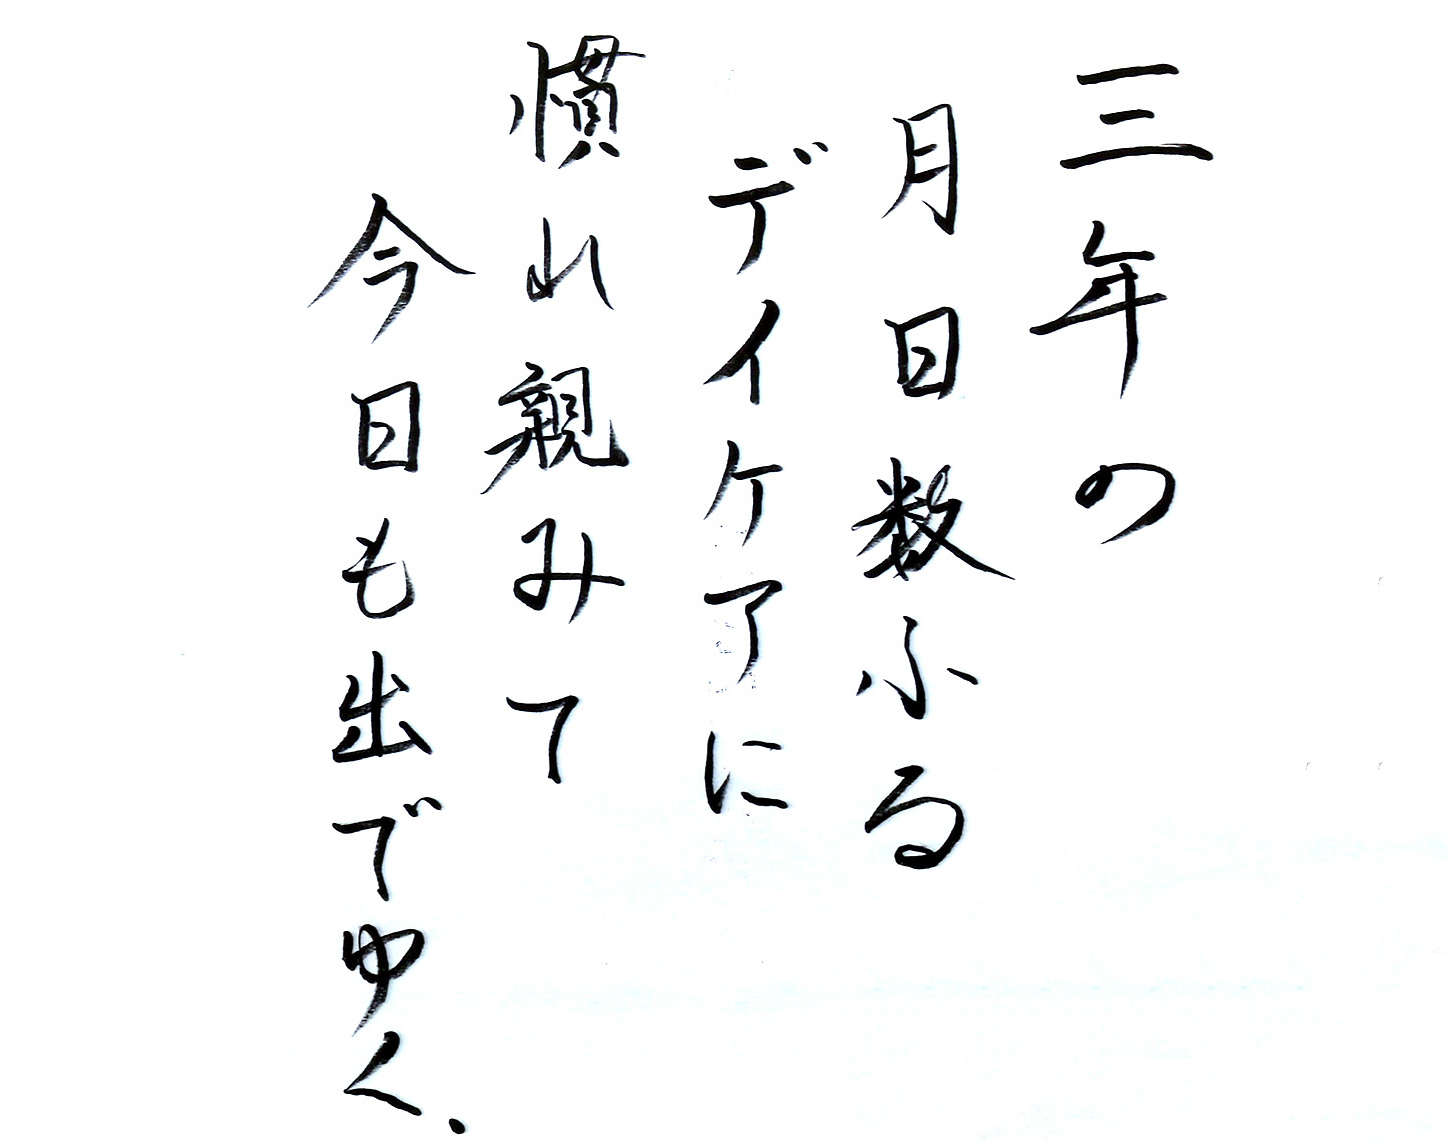 三年の
月日数ふる
デイケアに
慣れ親みて
今日も出でゆく.